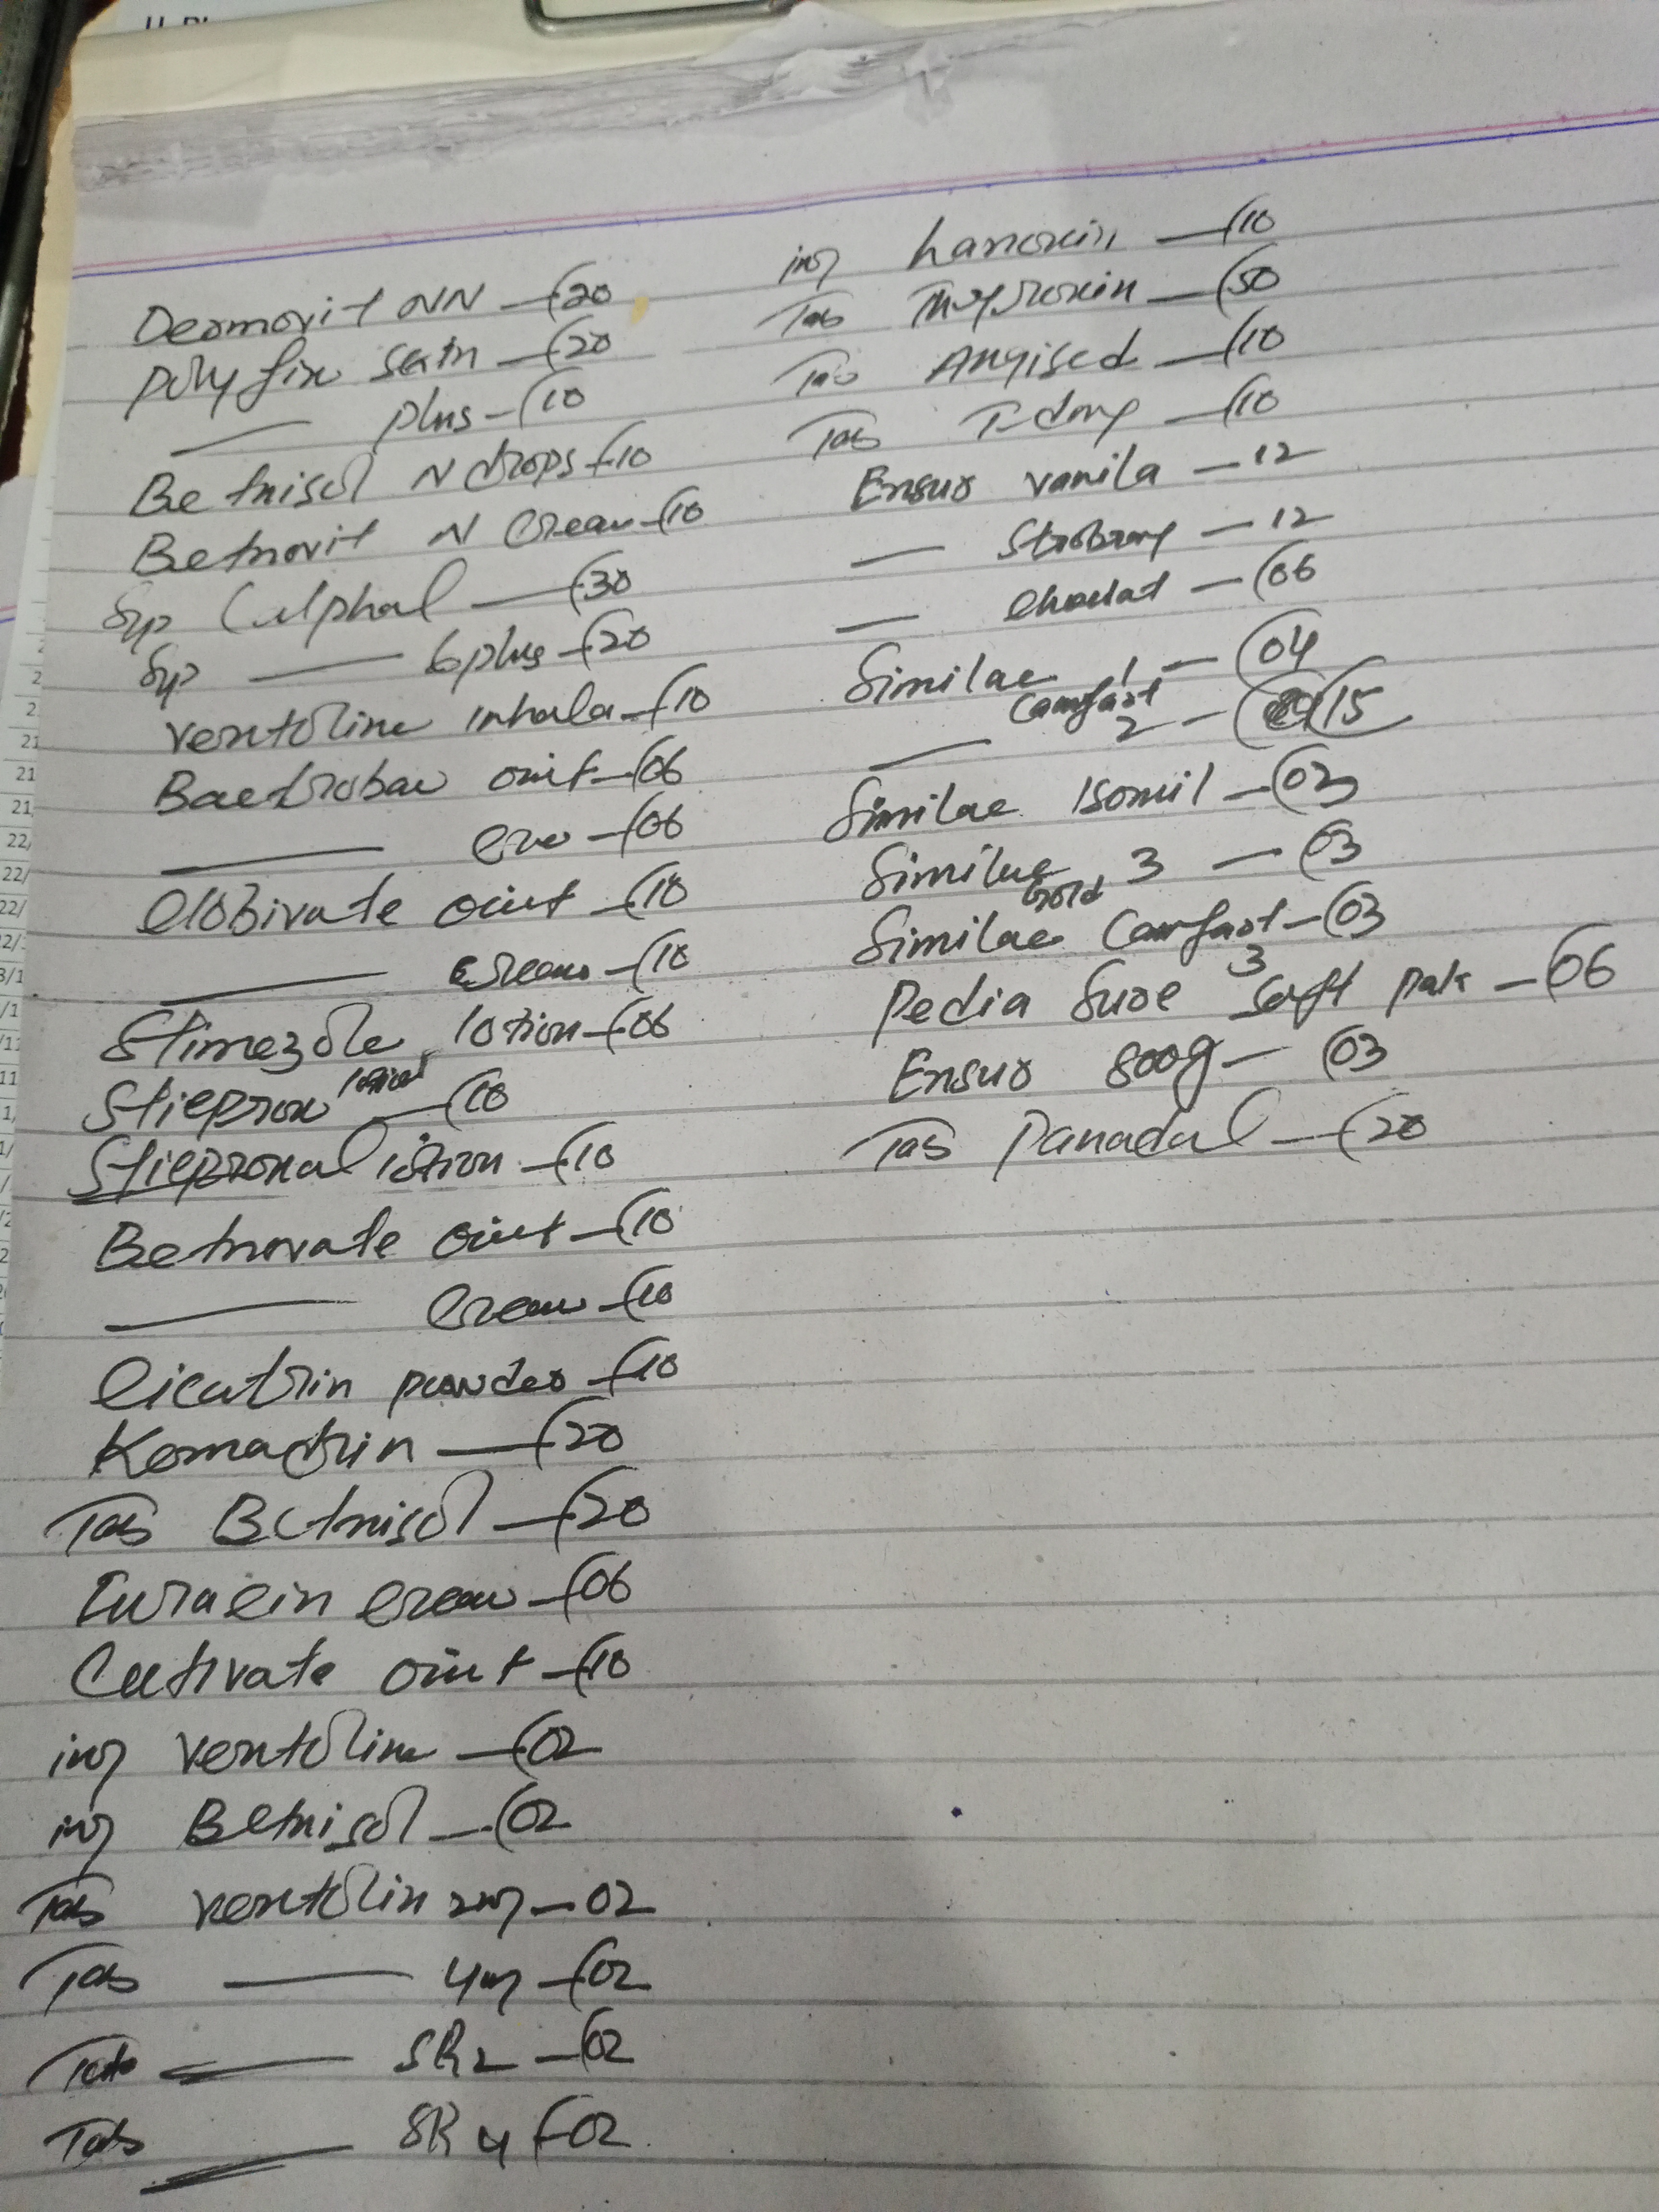 Dermovit NN — (20
Polyfix skin — (20
— plus — (10
Betnisol N drops — (10
Betnovit N Cream — (10
Syp Calphol — (30
Syp — 6 plus — (20
ventoline inhala — (10
Bactroban oint — (06
— cre — (06
Clobivate oint — (10
— Cream — (10
Stimezole lotion — (06
Stieprox lotion — (10
Stiepronal lotion — (10
Betnovate oint — (10
— Cream — (10
Cicatrin powder — (10
Kemadrin — (20
Tab Betnisol — (20
Furacin cream — (06
Cutivate oint — (10
inj ventoline — (02
inj Betnisol — (02
Tab ventolin 2mg — 02
Tab — 4mg — (02
Tab — SR 2 — (02
Tab — SR 4 — (02
inj Lanoxin — (10
Tab Thyroxin — (50
Tab Angised — (10
Tab T-day — (10
Ensur vanila — 12
— Strobrry — 12
— Choclat — (06
Similac 1 — (04
— Comfort 2 — (15
Similac Isomil — (03
Similac Gold 3 — (03
Similac Comfort 3 — (03
Pedia Sure soft pak — (06
Ensur 800g — (03
Tab Panadal — (20